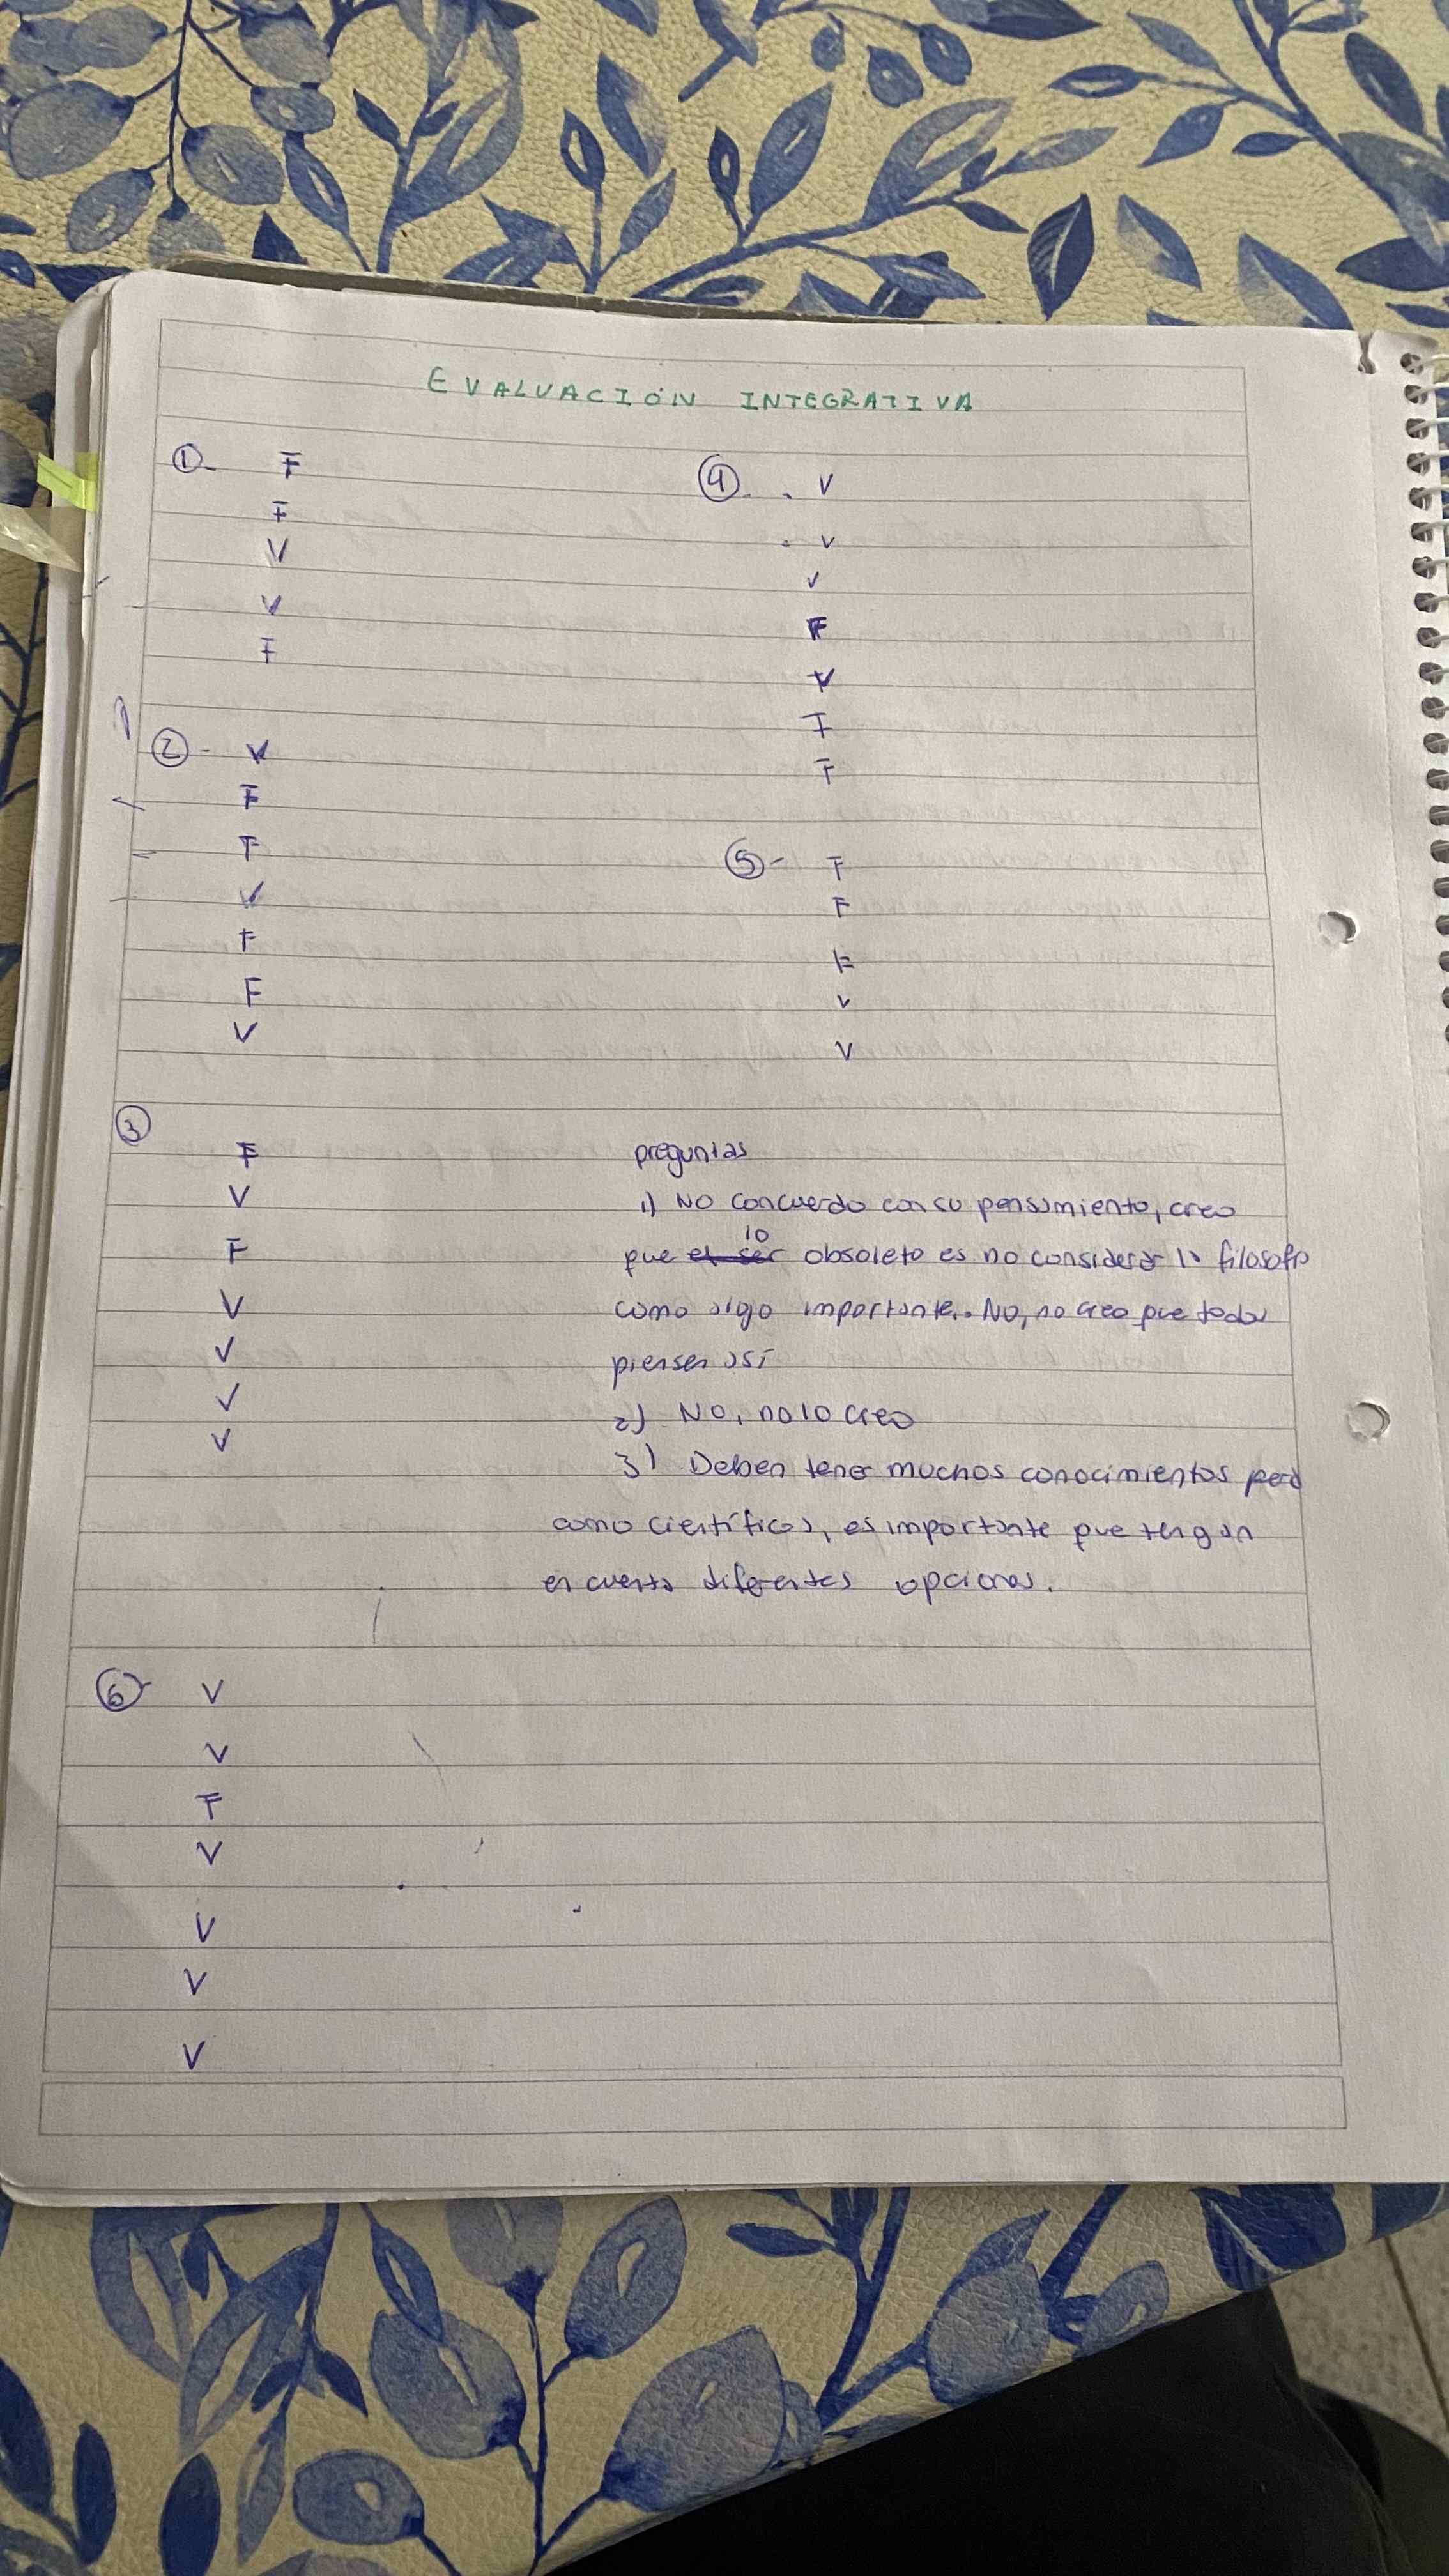 EVALUACIÓN INTEGRATIVA
①- F
F
V
V
F
②- V
F
F
V
F
F
V
③
F
V
F
V
V
V
V
④. . V
. V
V
F
V
F
F
⑤- F
F
F
V
V
preguntas
1) No concuerdo con su pensamiento, creo
que el ser lo obsoleto es no considerar la filosofia
como algo importante. No, no creo que todos
piensen así
2) No, no lo creo
3) Deben tener muchos conocimientos pero
como científicos, es importante que tengan
en cuenta diferentes opciones.
⑥- V
V
F
V
V
V
V